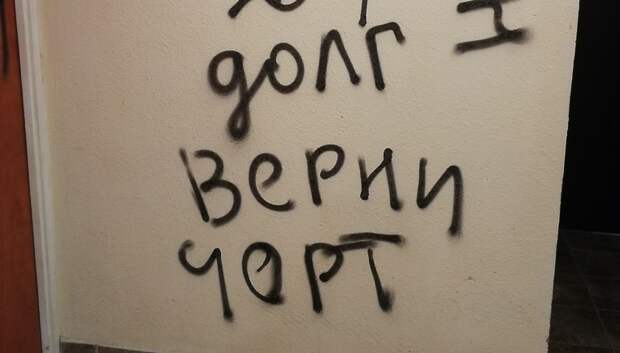 долг
верни
чорт